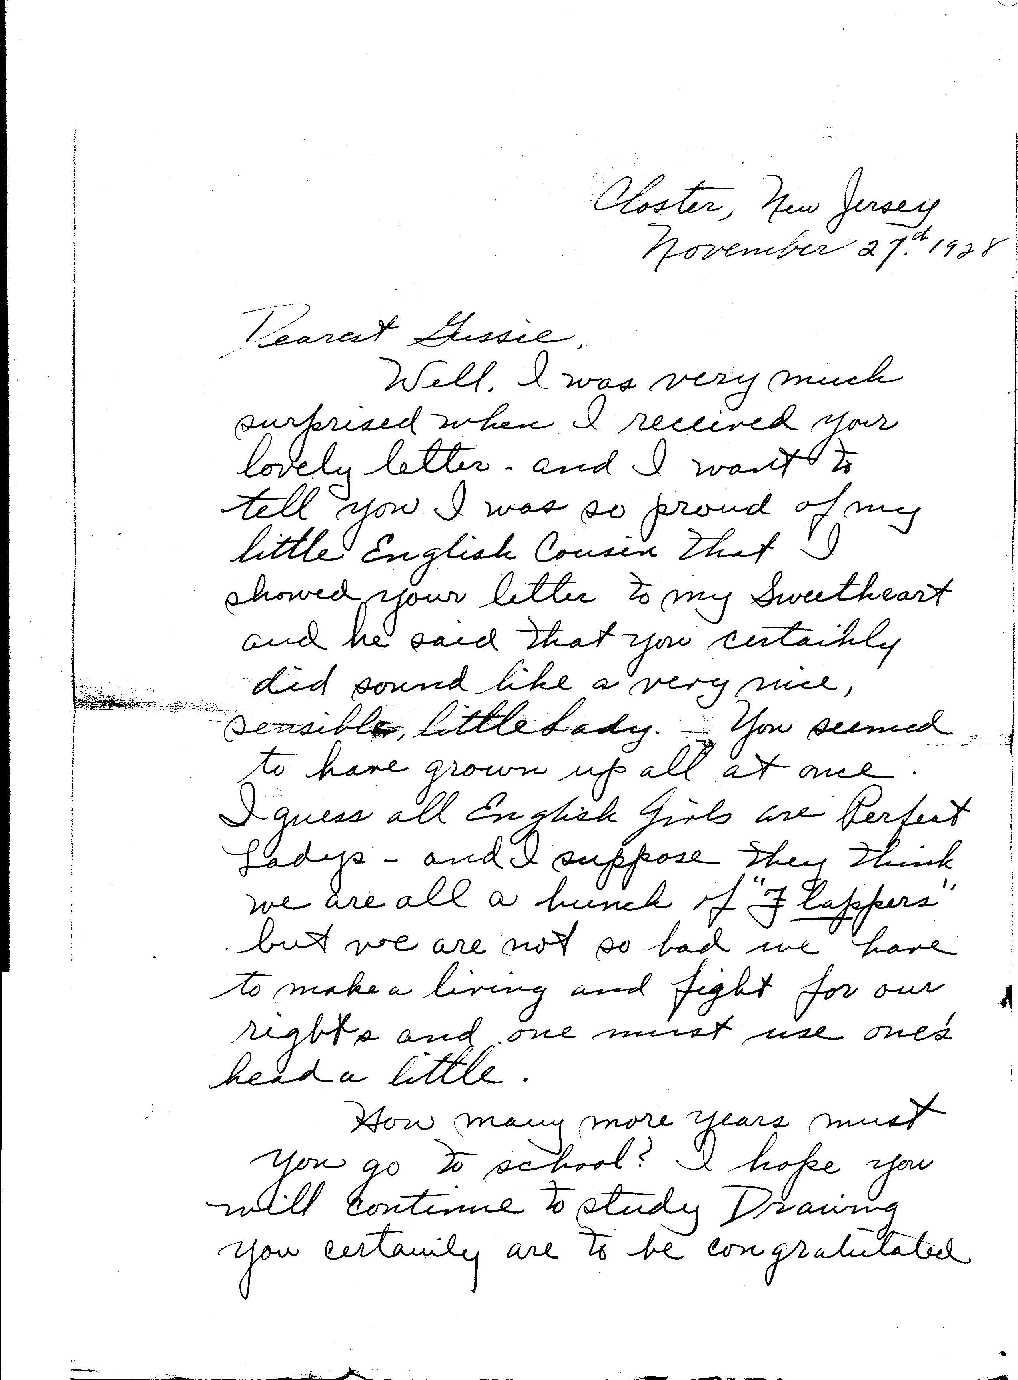 Closter, New Jersey
November 27th. 1928
Dearest Gussie,
Well, I was very much
surprised when I received your
lovely letter - and I want to
tell you I was so proud of my
little English Cousin that I
showed your letter to my Sweetheart
and he said that you certainly
did sound like a very nice,
sensible, little Lady. - You seemed
to have grown up all at once.
I guess all English Girls are Perfect
Ladys - and I suppose they think
we are all a bunch of "Flappers"
but we are not so bad we have
to make a living and fight for our
rights and one must use one's
head a little.
How many more years must
you go to school? I hope you
will continue to study Drawing
you certainly are to be congratulated